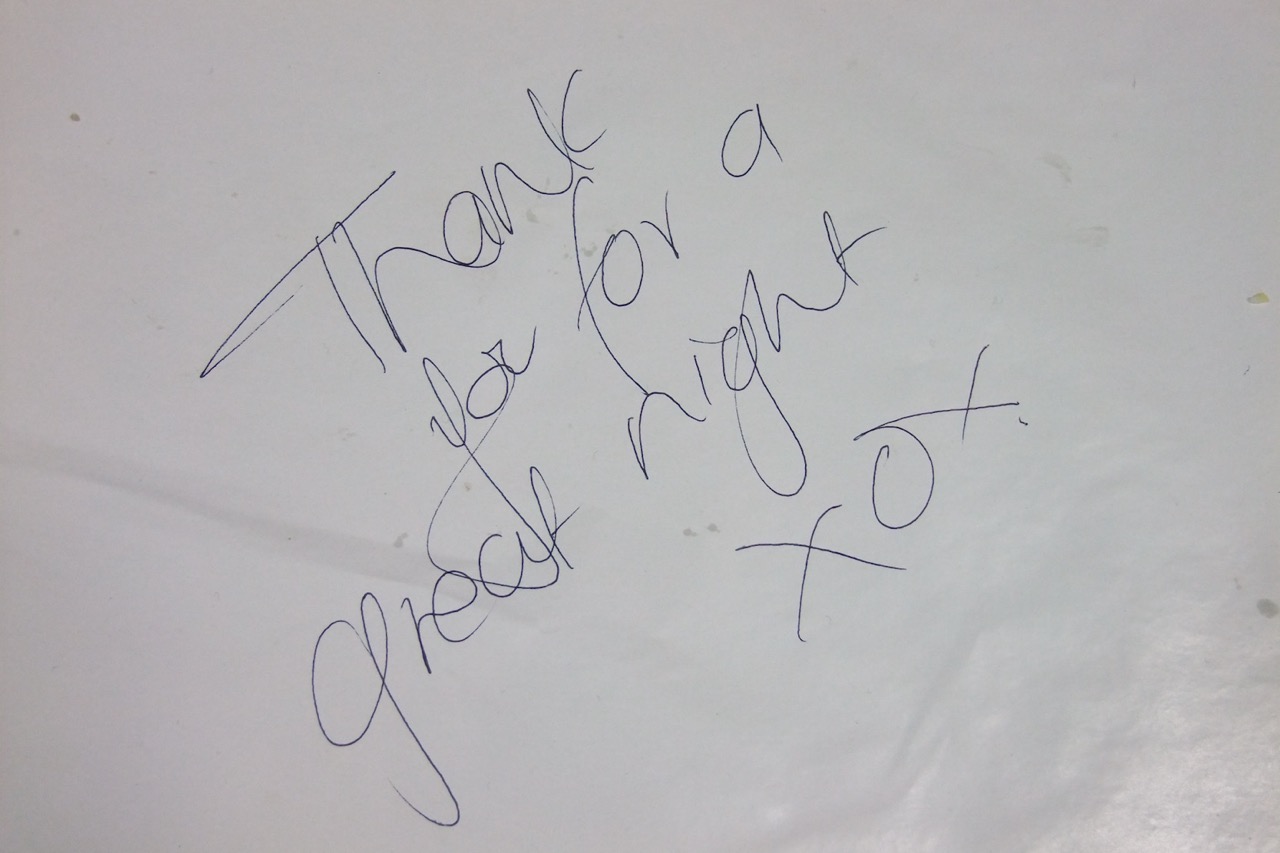 Thank
you for a
great night
xox.